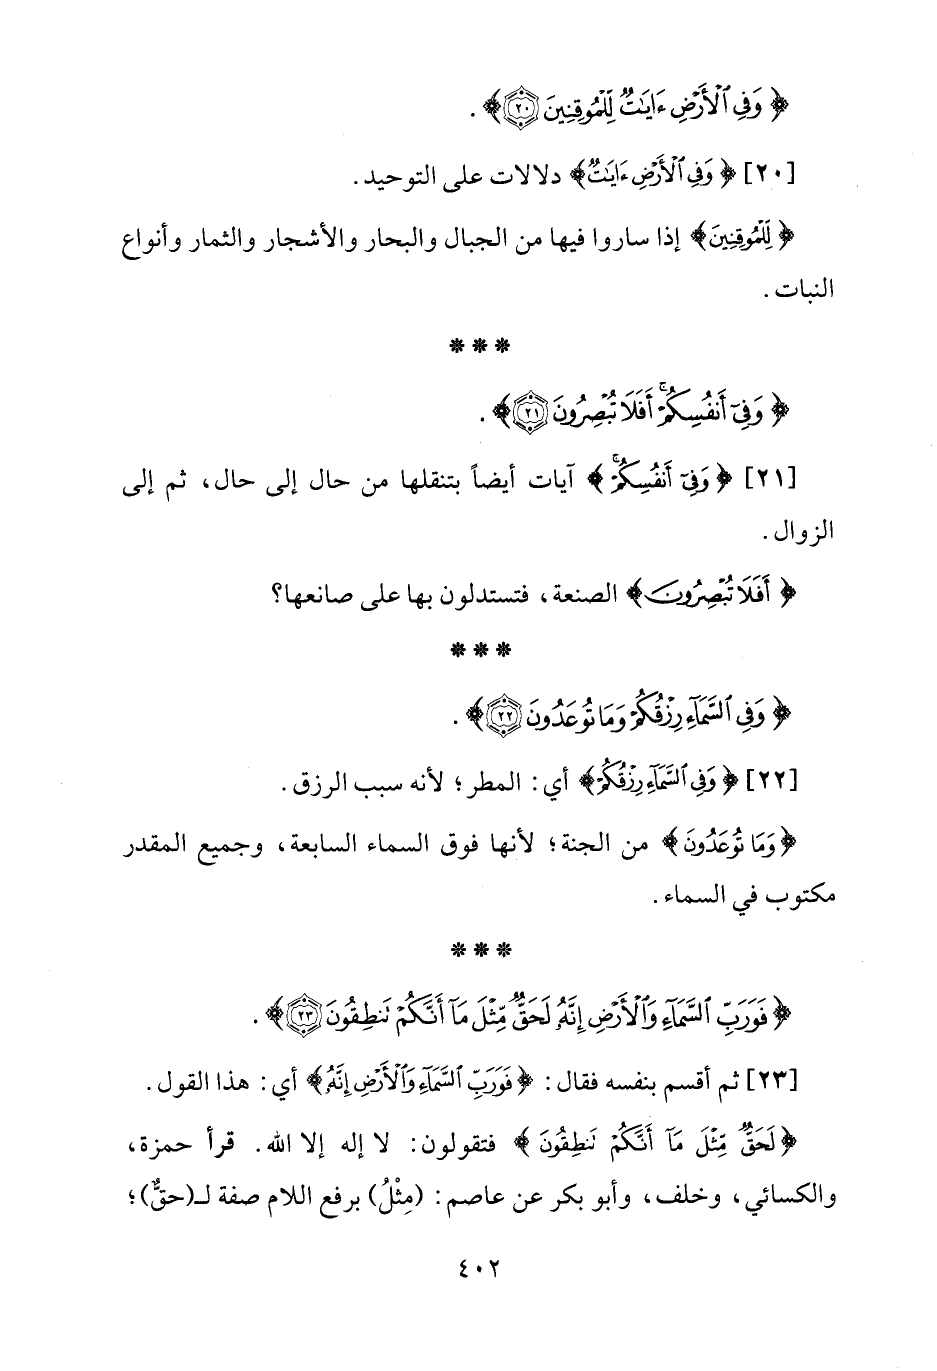 ﴿ وَفِي ٱلْأَرْضِ ءَايَٰتٌ لِّلْمُوقِنِينَ ﴿٢٠﴾ ﴾ .
[٢٠] ﴿ وَفِي ٱلْأَرْضِ ءَايَٰتٌ ﴾ دلالات على التوحيد .
﴿ لِّلْمُوقِنِينَ ﴾ إذا ساروا فيها من الجبال والبحار والأشجار والثمار وأنواع
النبات .
* * *
﴿ وَفِيٓ أَنفُسِكُمْۚ أَفَلَا تُبْصِرُونَ ﴿٢١﴾ ﴾ .
[٢١] ﴿ وَفِيٓ أَنفُسِكُمْۚ ﴾ آيات أيضاً بتنقلها من حال إلى حال، ثم إلى
الزوال .
﴿ أَفَلَا تُبْصِرُونَ ﴾ الصنعة، فتستدلون بها على صانعها؟
* * *
﴿ وَفِي ٱلسَّمَآءِ رِزْقُكُمْ وَمَا تُوعَدُونَ ﴿٢٢﴾ ﴾ .
[٢٢] ﴿ وَفِي ٱلسَّمَآءِ رِزْقُكُمْ ﴾ أي: المطر؛ لأنه سبب الرزق .
﴿ وَمَا تُوعَدُونَ ﴾ من الجنة؛ لأنها فوق السماء السابعة، وجميع المقدر
مكتوب في السماء .
* * *
﴿ فَوَرَبِّ ٱلسَّمَآءِ وَٱلْأَرْضِ إِنَّهُۥ لَحَقٌّ مِّثْلَ مَآ أَنَّكُمْ تَنطِقُونَ ﴿٢٣﴾ ﴾ .
[٢٣] ثم أقسم بنفسه فقال: ﴿ فَوَرَبِّ ٱلسَّمَآءِ وَٱلْأَرْضِ إِنَّهُۥ ﴾ أي: هذا القول .
﴿ لَحَقٌّ مِّثْلَ مَآ أَنَّكُمْ تَنطِقُونَ ﴾ فتقولون: لا إله إلا الله. قرأ حمزة،
والكسائي، وخلف، وأبو بكر عن عاصم: (مِثْلُ) برفع اللام صفة لـ(حقٌّ)؛
٤٠٢